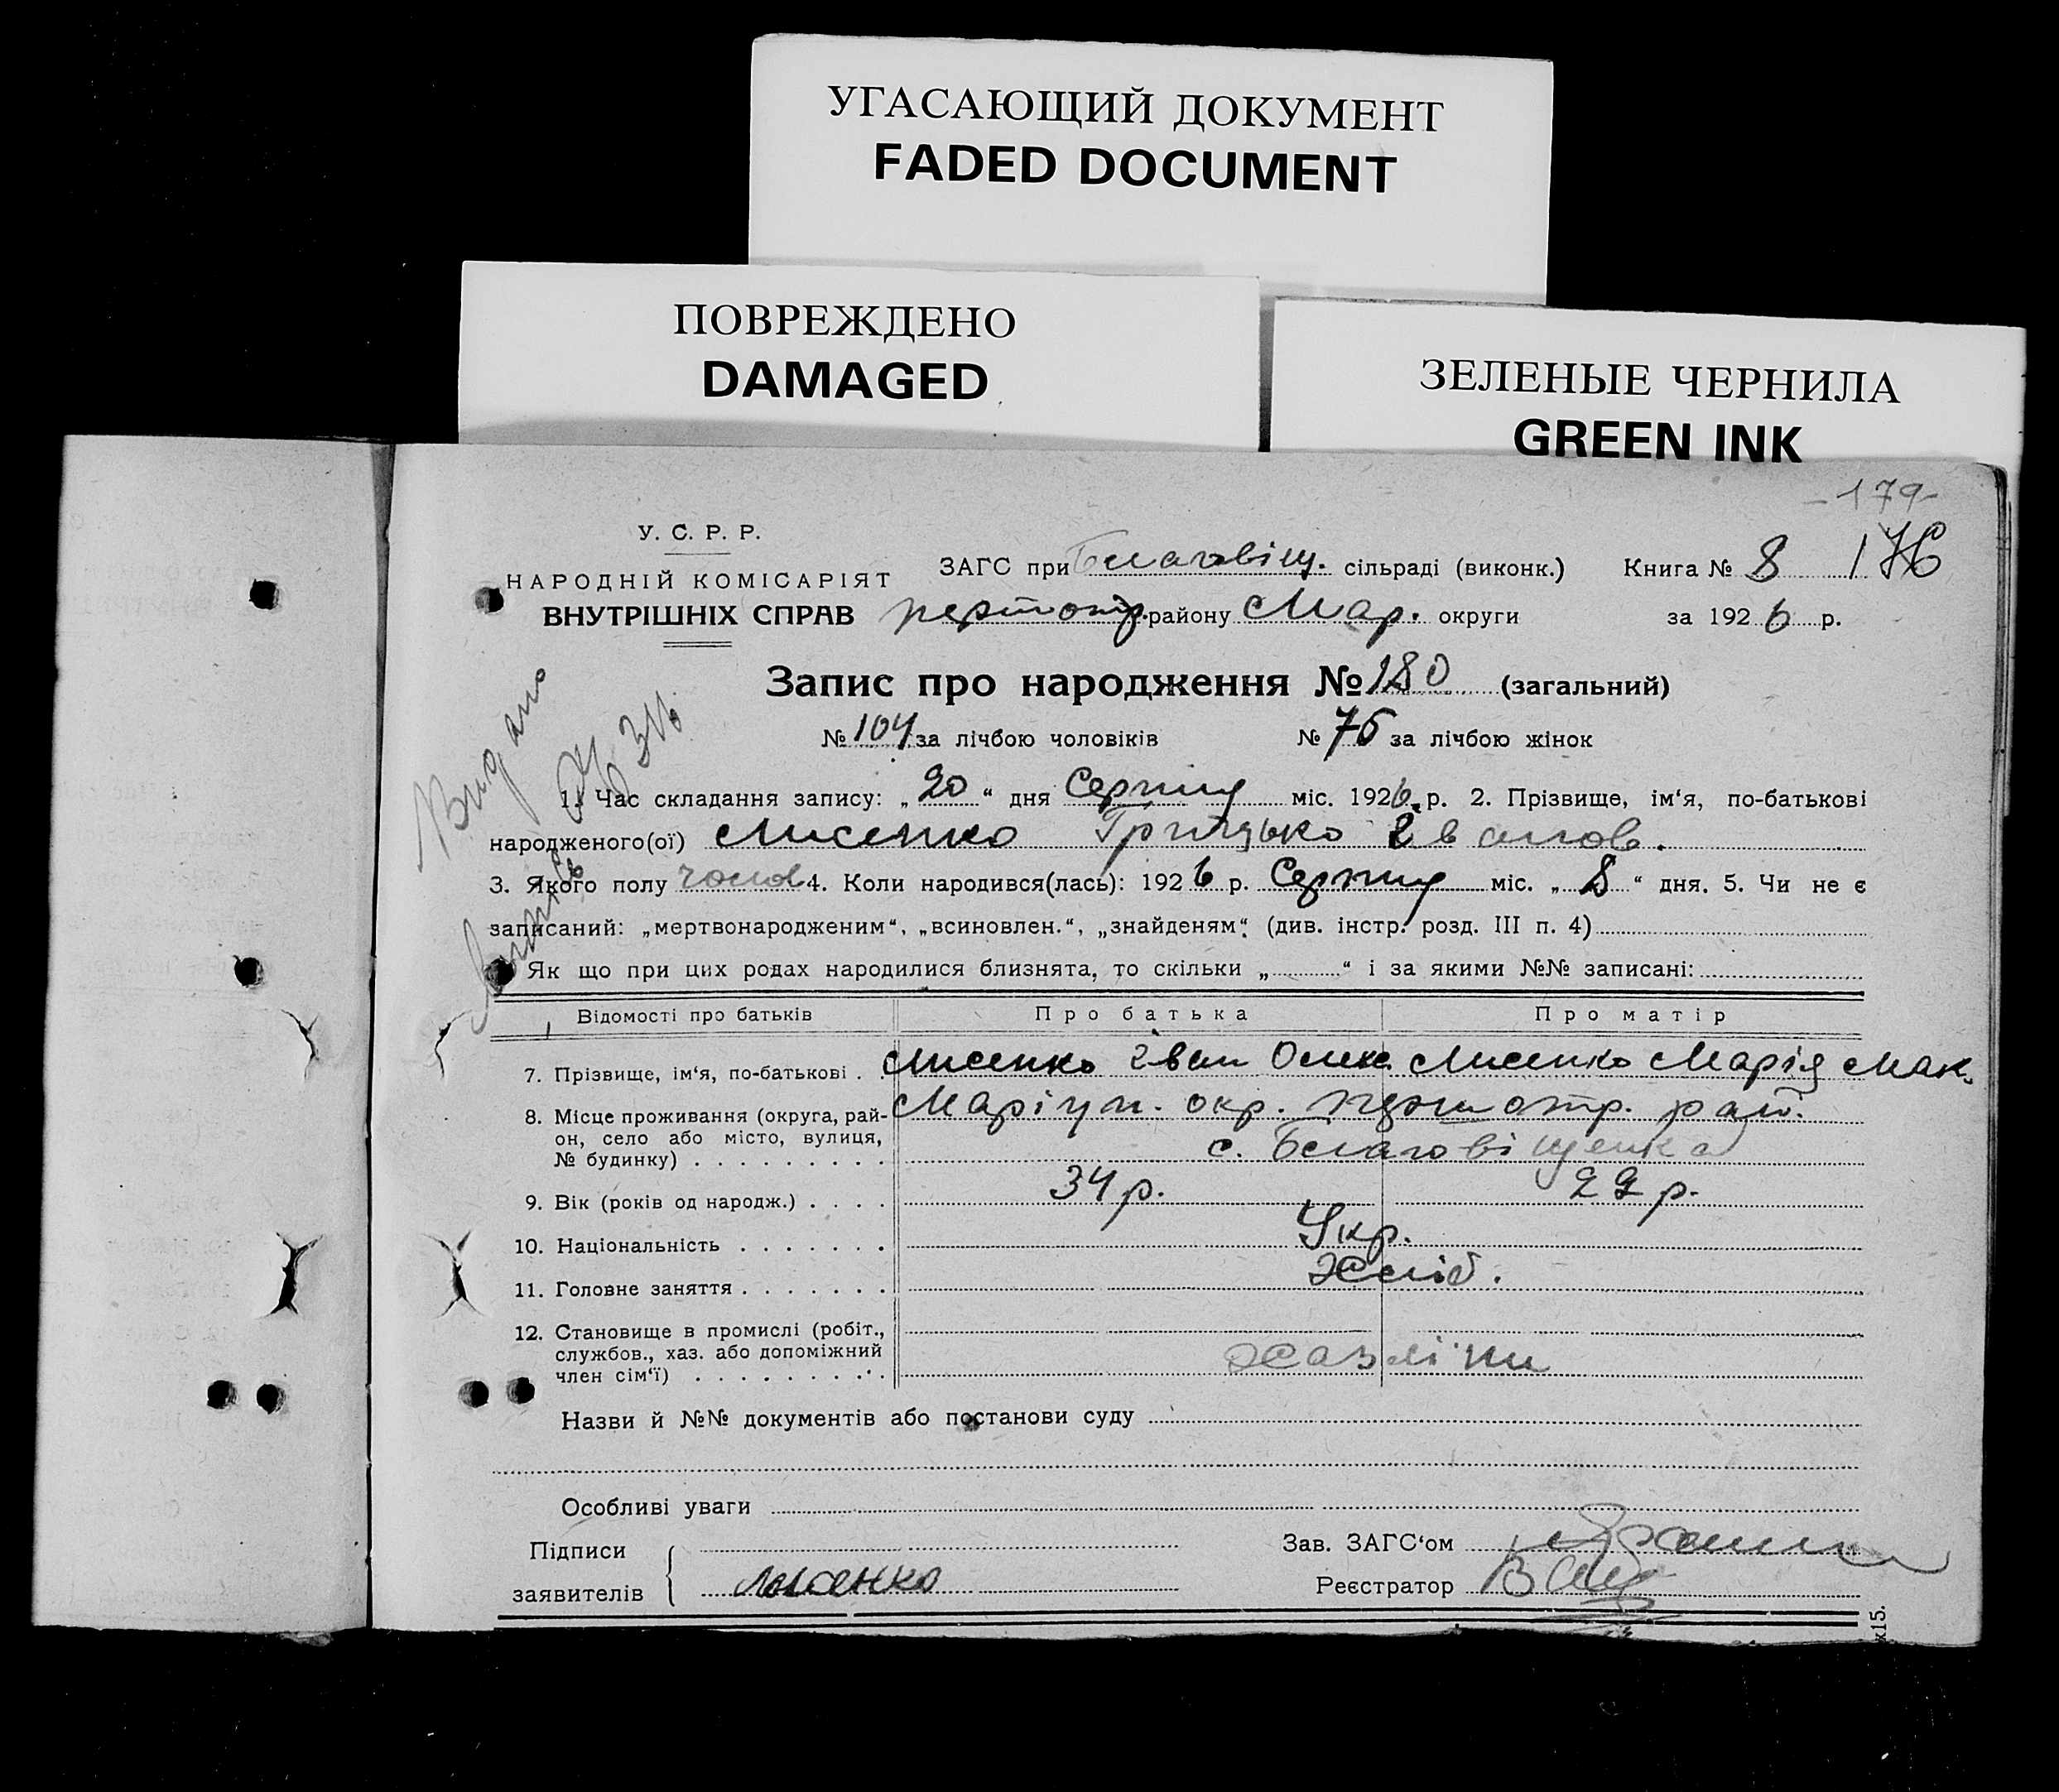 УГАСАЮЩИЙ ДОКУМЕНТ
FADED DOCUMENT
ПОВРЕЖДЕНО
DAMAGED
ЗЕЛЕНЫЕ ЧЕРНИЛА
GREEN INK
-179-
У. С. Р. Р.
НАРОДНІЙ КОМІСАРІЯТ
ВНУТРІШНІХ СПРАВ
ЗАГС при Благовіщ. сільраді (виконк.) Книга № 8 176
району Мар. округи за 1926 р.
Запис про народження № 180 (загальний)
№ 104 за лічбою чоловіків № 76 за лічбою жінок
Видано
1. Час складання запису: „20“ дня Серпня міс. 1926 р. 2. Прізвище, ім‘я, по-батькові
народженого(ої) Лисенко Грицько Іванов.
3. Якого полу чолов 4. Коли народився(лась): 1926 р. Серпня міс. „8“ дня. 5. Чи не є
записаний: „мертвонародженим“, „всиновлен.“, „знайденям“ (див. інстр. розд. III п. 4)
Як що при цих родах народилися близнята, то скільки „ “ і за якими №№ записані:
Відомості про батьків Про батька Про матір
7. Прізвище, ім‘я, по-батькові . . Лисенко Іван Олекс Лисенко Марія Мак.
8. Місце проживання (округа, рай-он, село або місто, вулиця, № будинку) . . . . . . . . . Маріуп. окр. рай.
с. Благовіщенка
9. Вік (років од народж.) . . . . 34 р. 29 р.
10. Національність . . . . . . . Укр.
11. Головне заняття . . . . . . . Хліб.
12. Становище в промислі (робіт.,
службов., хаз. або допоміжний
член сім‘ї) . . . . . . . . . . Хазяіни
Назви й №№ документів або постанови суду
Особливі уваги
Підписи
заявителів Лисенко
Зав. ЗАГС‘ом
Реєстратор
х15.